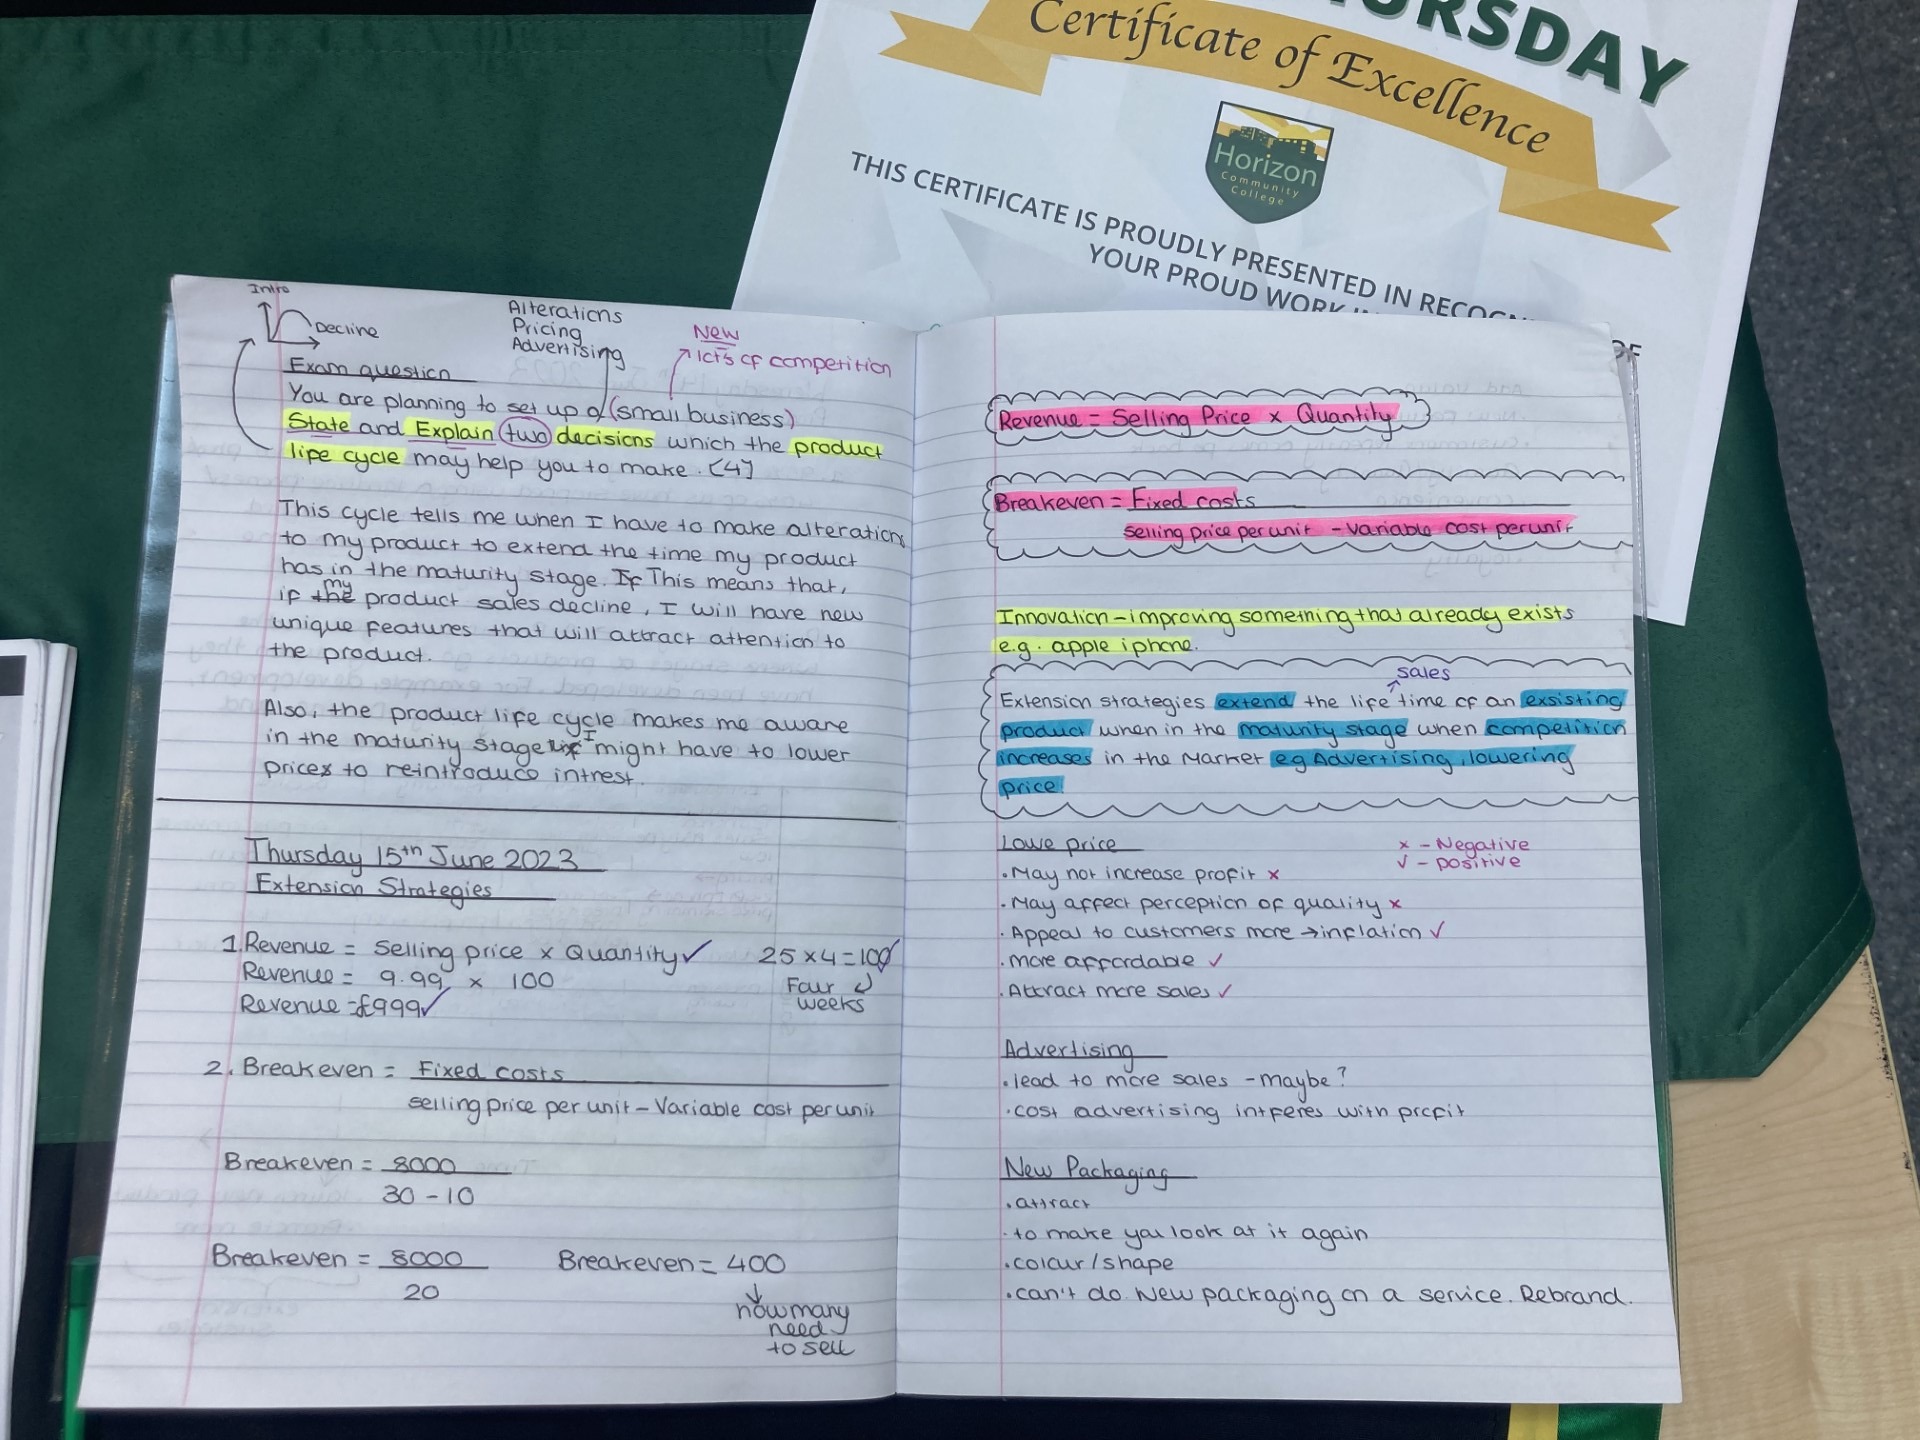 RSDAY
Certificate of Excellence
Horizon
Community
College
THIS CERTIFICATE IS PROUDLY PRESENTED IN RECOGN
YOUR PROUD WORK IN
OF
Intro
Decline
Alterations
Pricing
Advertising
New
lots of competition
Exam question
You are planning to set up a (small business)
State and Explain two decisions which the product
life cycle may help you to make. [4]
This cycle tells me when I have to make alterations
to my product to extend the time my product
has in the maturity stage. If This means that,
my
if the product sales decline, I will have new
unique features that will attract attention to
the product.
Also, the product life cycle makes me aware
in the maturity stage I might have to lower
prices to reintroduce intrest.
Thursday 15th June 2023
Extension Strategies
1. Revenue = Selling price x Quantity ✓ 25 x 4 = 100
Revenue = 9.99 x 100
Four
weeks
Revenue = £999 ✓
2. Breakeven = Fixed costs
selling price per unit - Variable cost per unit
Breakeven = 8000
30 - 10
Breakeven = 8000 Breakeven = 400
20
how many
need
to sell
Revenue = Selling Price x Quantity
Breakeven = Fixed costs
selling price per unit - Variable cost per unit
Innovation - improving something that already exists
e.g. apple iphone.
sales
Extension strategies extend the life time of an exsisting
product when in the maturity stage when competition
increases in the Market eg Advertising, lowering
price
Lowe price
x - Negative
✓ - positive
• May not increase profit x
• May affect perception of quality x
• Appeal to customers more → inflation ✓
• more affordable ✓
• Attract more sales ✓
Advertising
• lead to more sales - maybe?
• cost advertising intferes with profit
New Packaging
• attract
• to make you look at it again
• colour/shape
• can't do New packaging on a service. Rebrand.